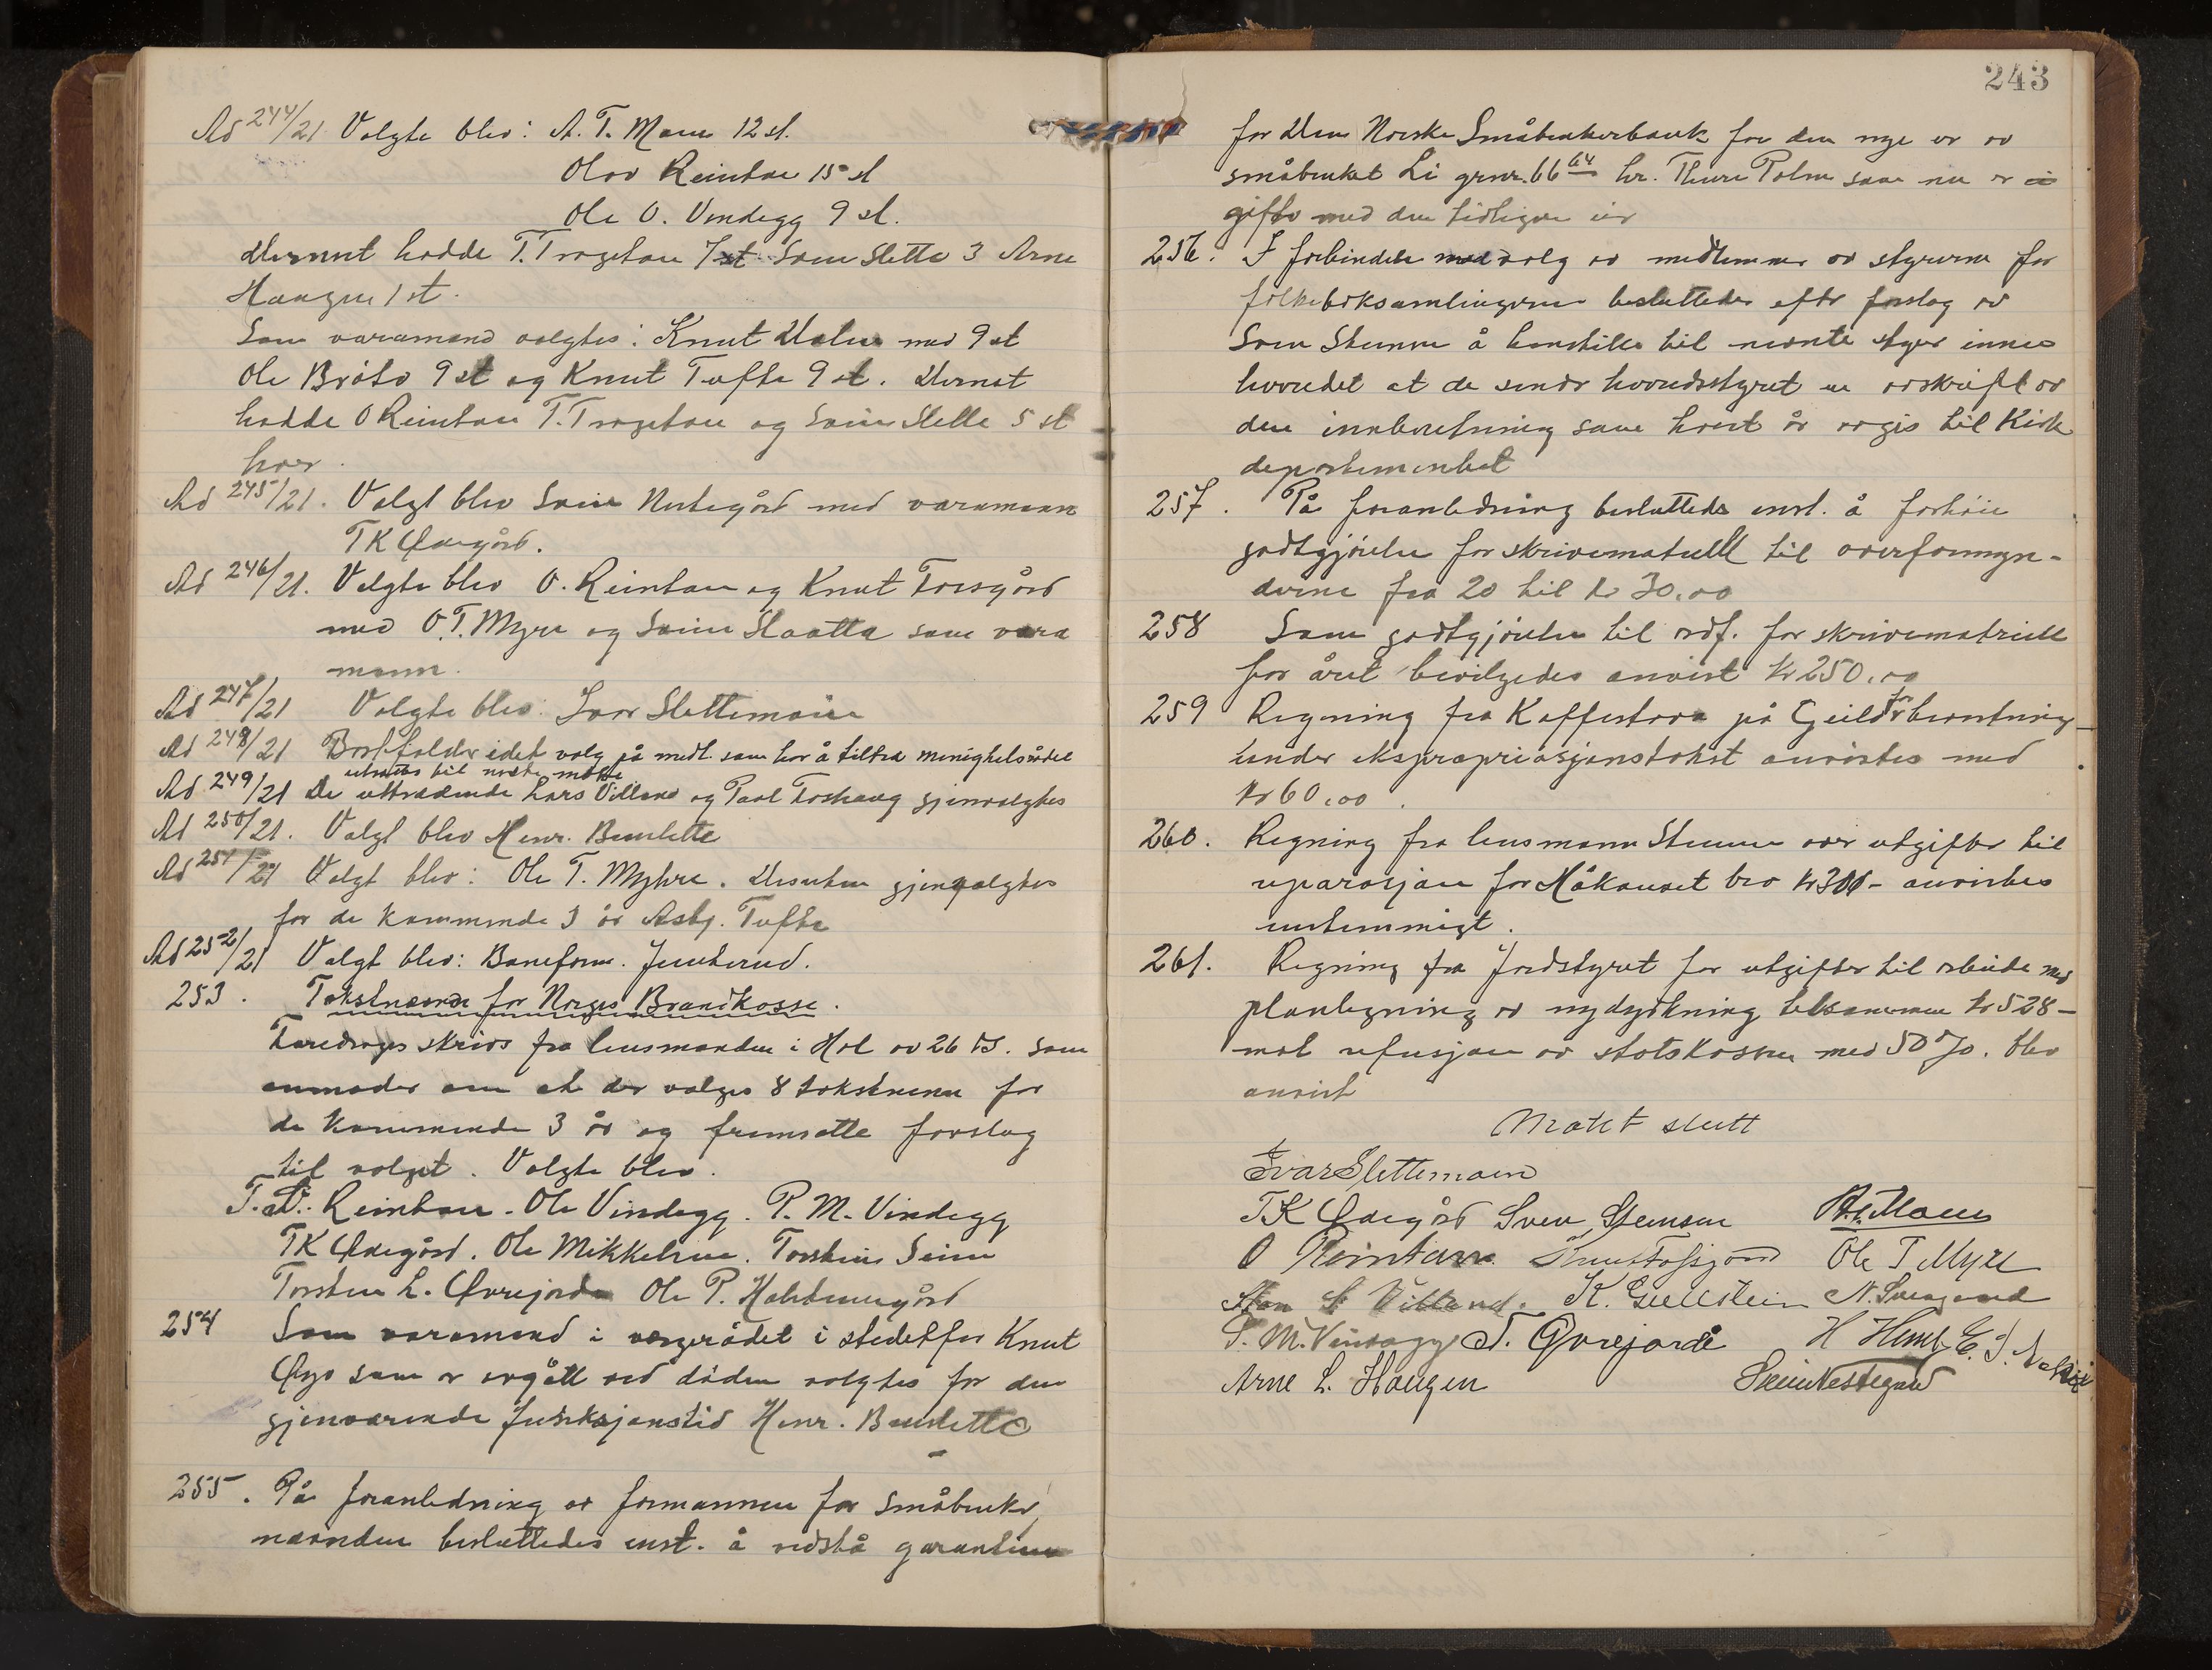 Ad 244/21 Valgte blev: A. T. Moen 12 st.
Olav Reinton 15 st
Ole O. Vindegg 9 st.
Dernest hadde T. Trageton 7 st Svein Sletto 3 Arne
Haugen 1 st.
Som varamend valgtes: Knut med 9 st
Ole Bråto 9 st og Knut Tufte 9 st. Dernest
hadde O Reinton T. Trageton og Svein Sletto 5 st
hver.
Ad 245/21. Valgt blev Svein Nestegård med varamann
TK Ødegård.
Ad 246/21. Valgte blev O. Reinton og Knut Forsgård
med O. T. Myre og Svein Slaatta som vara
mann.
Ad 247/21 Valgte blev: Ivar Slettemoen
Ad 248/21 Bortfalder idet valg på medl. som har å tiltræ menighetsrådet
utsættes til næste møte
Ad 249/21 De uttrædende Lars Villand og Paul Foshaug gjenvalgtes
Ad 250/21. Valgt blev Henr. Bunslette
Ad 251/21 Valgt blev: Ole T. Myhre. Desuten gjenvalgtes
for de kommende 3 år Asbj. Tufte
Ad 252/21 Valgt blev: Baneform. Junkerud.
253. Takstnevnd for Norges Brandkasse.
Foredroges skriv fra lensmanden i Hol av 26 ds. som
anmoder om at der valges 8 takstmenn for
de kommende 3 år og fremsatte forslag
til valget. Valgte blev.
T. O. Reinton. Ole Vindegg. P. M. Vindegg
TK Ødegård. Ole Mikkelsen. Torstein Seim
Torsten L. Øvrejorde Ole P. Holstenegård
254 Som varamend i vergerådet i stedetfor Knut
Øyo som er avgått ved døden valgtes for den
gjenværende funksjonstid Henr. Bunslette
255. På foranledning av formannen for småbruks
nævnden besluttedes enst. å vedstå garantien
243
for Den Norske Småbrukerbank for den nye eier av
småbruket Li grnr. 66 64 hr. Thure Palm som nu er
gift med den tidligere eier
256. I forbindelse med valg av medlemmer av styrerne for
folkeboksamlingerne besluttedes efter forslag av
Sven Stensen å henstille til nævnte styrer innen
herredet at de sender herredsstyret en avskrift av
den innberetning som hvert år avgis til Kirke
departementet
257. På foranledning besluttedes enst. å forhøie
godtgjørelse for skrivematriell til overformyn-
derne fra 20 til kr 30.00
258 Som godtgjørelse til ordf. for skrivematriell
for året bevilgedes anvist kr 250.00
259 Regning fra Kaffestova på Geilo for bevertning
under ekspropriasjonstakst anvistes med
kr 60.00.
260. Regning fra lensmann Stensen over utgifter til
reparasjon for Håkonset bro kr 300- anvistes
enstemmigt.
261. Regning fra Jordstyret for utgifter til arbeide med
planlegning av nydyrkning tilsammen kr 528-
mot refusjon av statskassen med 50 %. blev
anvist
Møtet slutt
Ivar Slettemoen
TK Ødegård Sven Stensen A. T. Moen
O Reinton Knut Forsgård Ole T Myre
S. Villand. K. Gullstein N. Svangård
P. M. Vindegg T. Øvrejorde H
Arne L. Haugen Svein Nestegard